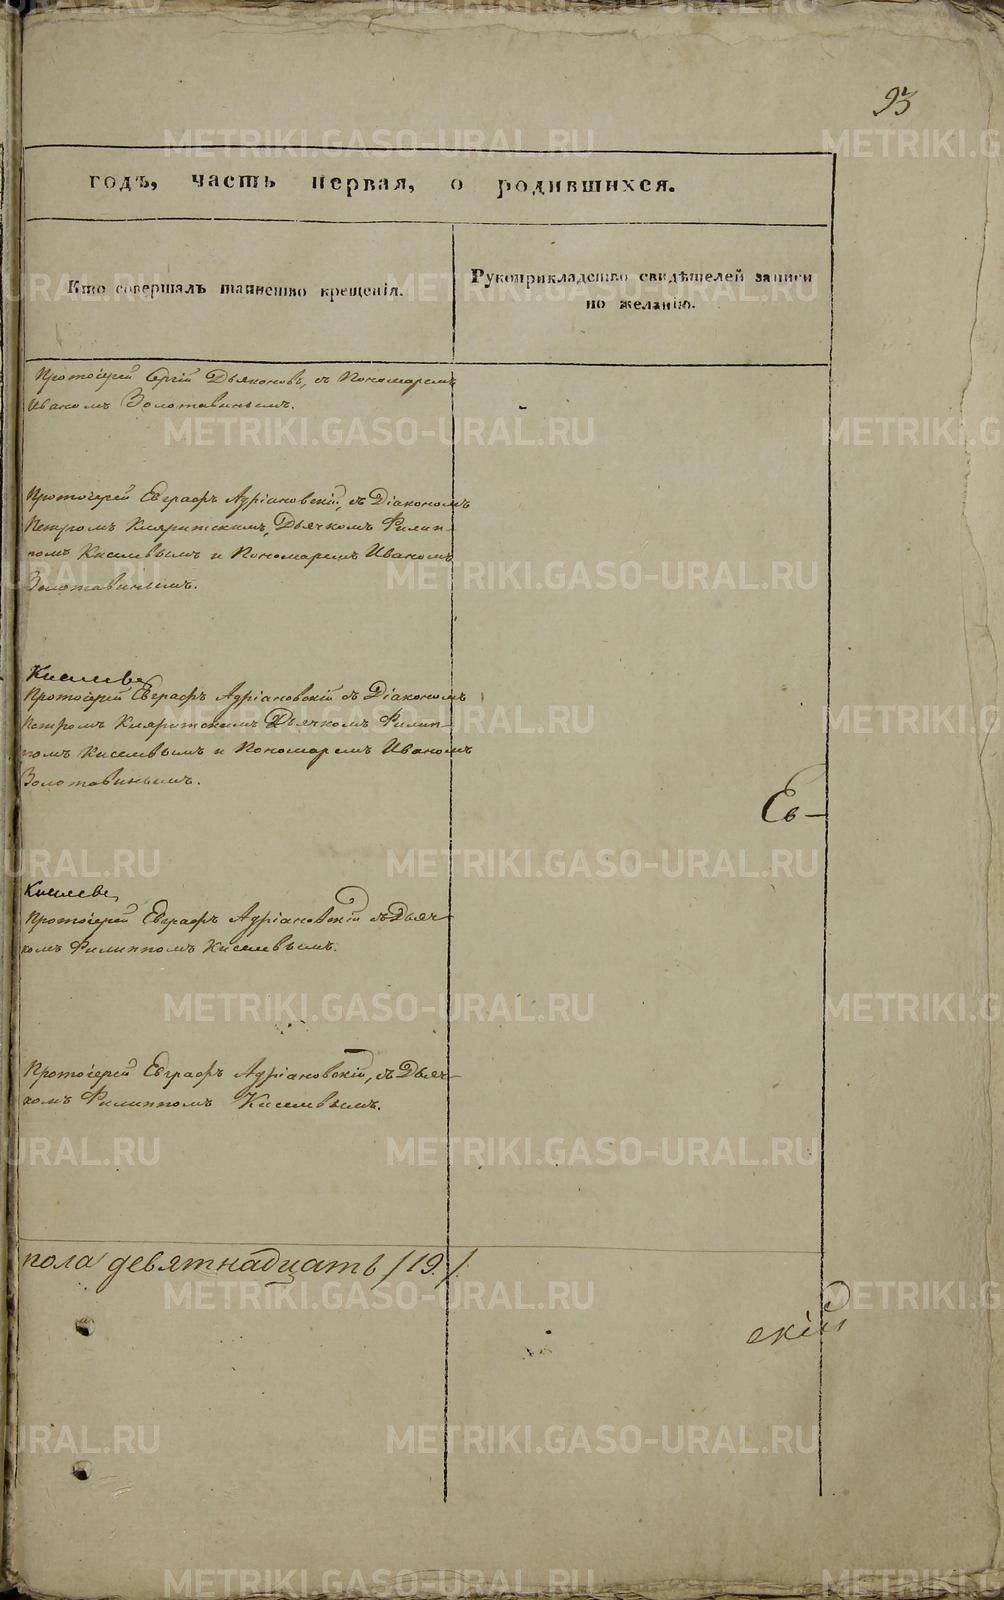 93
годъ, часть первая, о родившихся.
Кто совершалъ таинство крещенія.
Рукоприкладство свидѣтелей записи
по желанію.
Протоіерей Сергій Дьяконовъ, съ Пономаремъ
Иваномъ Золотавинымъ.
Протоіерей Евграфъ Адріановскій, съ Діакономъ
Петромъ Дьячкомъ Филип-
помъ Киселевымъ и Пономаремъ Иваномъ
Золотавинымъ.
Протоіерей Евграфъ Адріановскій съ Діакономъ
Петромъ Дьячкомъ Филип-
помъ Киселевымъ и Пономаремъ Иваномъ
Золотавинымъ.
Ев-
Протоіерей Евграфъ Адріановскій съ Дьяч-
комъ Филиппомъ Киселевымъ.
Протоіерей Евграфъ Адріановскій, съ Дьяч-
комъ Филиппомъ Киселевымъ.
пола девятнадцать /19./.
скій
METRIKI.GASO-URAL.RU